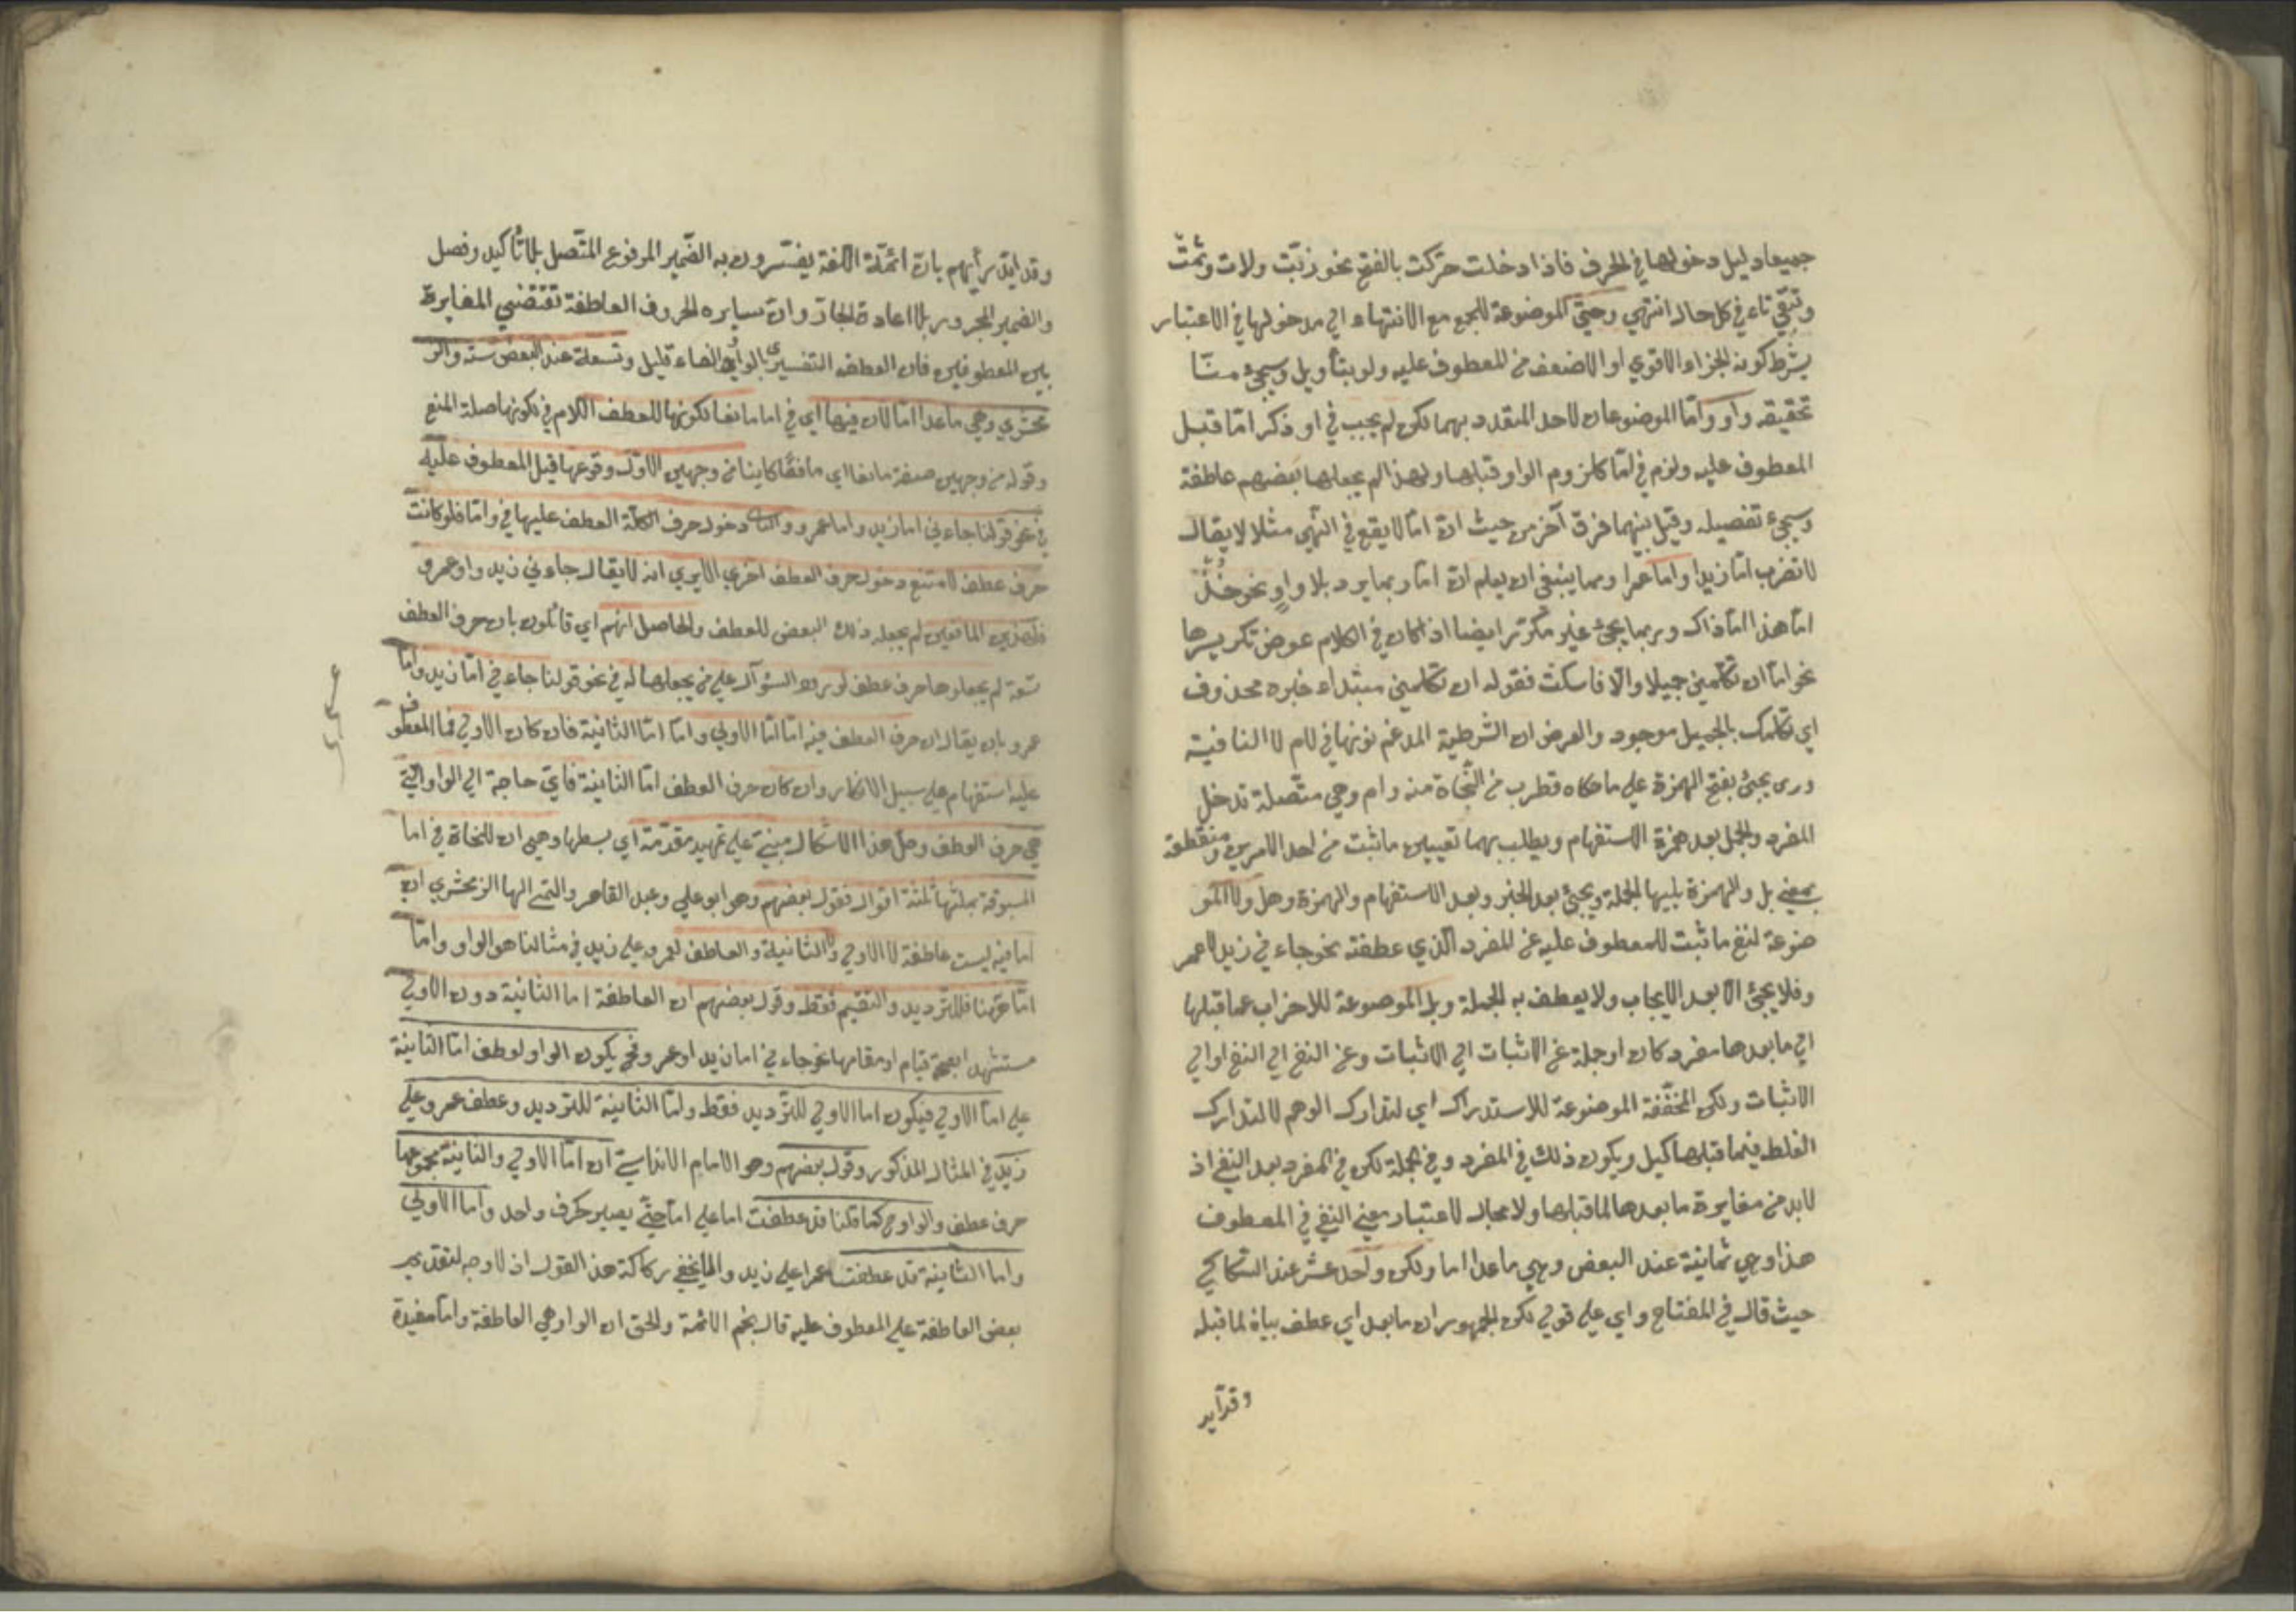 جميعا دليل دخولها في الحرف فاذا دخلت حرّكت بالفتح نحو ربّت ولات وثمّت
وتبقي تاء في كل حال انتهي وحتي الموضوعة للجمع مع الانتهاء الي مدخولها في الاعتبار
بشرط كونه الجزاء الاقوي او الاضعف من المعطوف عليه ولو بتأويل وسيجئ منّا
تحقيقه واو وامّا الموضوعان لاحد المتعدد بهما لكن لم يجب في او ذكر امّا قبل
المعطوف عليه ولزم في امّا كلزوم الواو قبلها ولهذا لم يجعلها بعضهم عاطفة
وسيجئ تفصيله وقيل بينهما فرق آخر من حيث انّ امّا لا يقع في النهي مثلا لا يقال
لا تضرب امّا زيدا واما عمرا ومما ينبغي ان يعلم انّ امّا ربما يرد بلا واو نحو خذ
امّا هذا امّا ذاك وربما يجئ غير مكرّر ايضا اذا كان في الكلام عوض تكريرها
نحو امّا ان تكلمني جميلا والّا فاسكت فقوله ان تكلمني مبتداء خبره محذوف
اي تكلمك بالجميل موجود والغرض ان الشرطية المدغم نونها في لام لا النافية
وري يجئ بفتح الهمزة علي ما حكاه قطرب من النّحاة منه وام وهي متّصلة تدخل
المفرد والجمل بعد همزة الاستفهام ويطلب بهما تعيين ما ثبت من احد الامرين ومنقطعة
بمعني بل والهمزة يليها الجملة ويجئ بعد الخبر وبعد الاستفهام والهمزة وهل ولا المو
ضوعة لنفي ما ثبت للمعطوف عليه عن المفرد الّذي عطفته نحو جاء في زيد لا عمر
وفلا يجئ الّا بعد الايجاب ولا يعطف به الجملة وبل الموضوعة للاضراب عما قبلها
الي ما بعدها مفرد كان او جملة عن الاثبات الي الاثبات وعن النفي الي النفي او الي
الاثبات ولكن المخفّفة الموضوعة للاستدراك اي لتدارك الوهم لا لتدارك
الغلط فيما قبلها كبل ويكون ذلك في المفرد وفي الجملة لكن في المفرد بعد النفي اذ
لا بد من مغايرة ما بعدها لما قبلها ولا مجال لاعتبار معني النفي في المعطوف
هذا وهي ثمانية عند البعض وهي ما عدا اما ولكن واحد عشر عند السّكاكي
حيث قال في المفتاح واي علي قولي لكن الجمهور ان ما بعد اي عطف بيان لما قبله
وقد ايد
وقد ايّد رأيهم بانّ ائمّة اللغة يفسّرون به الضّمير المرفوع المتّصل بلا تأكيد وفصل
والضمير المجرور بلا اعادة الجارّ وانّ سايره الحروف العاطفة تقتضي المغايرة
بين المعطوفين فان العطف التفسيري بالواو والفاء قليل وتسعة عند البعض منه والز
مخشري وهي ما عدا امّا لان فيها اي في اما مانعا لكونها للعطف الكلام في كونها صلة المنع
وقوله من وجهين صفة مانعا اي مانعًا كاينا من وجهين الاوّل وقوعها قبل المعطوف عليه
في نحو قولنا جاءني اما زيد واما عمرو والثاني دخول حرف العطف عليها في وامّا فلو كانت
حرف عطف لامتنع دخول حرف العطف اخري الا يري انه لا يقال جاءني زيد واو عمرو
فلهذين المانعين لم يجعله ذلك البعض للعطف والحاصل انّهم اي قائلون بان حرف العطف
تسعة لم يجعلوها حرف عطف لورود السّؤال علي من يجعلها له في نحو قولنا جاء في امّا زيد وامّا
عمرو بان يقال ان حرف العطف فيه امّا امّا الاولي وامّا امّا الثانية فان كان الاولي فما المعطوف
عليه استفهام علي سبيل الانكار وان كان حرف العطف امّا الثانية فايّ حاجة الي الواو الّتي
هي حرف العطف وحلّ هذا الاشكال مبني علي تمهيد مقدّمة اي بسطها وهي ان للنحاة في اما
المسبوقة بمثلها ثلثة اقوال فقول بعضهم وهو ابو علي وعبد القاهر والتمي اليها الزمخشري ان
امّا فيه ليست عاطفة لا الاولي ولا الثانية والعاطف لعمرو علي زيد في مثالنا هو الواو وامّا
امّا ههنا فللترديد والتقيم فقط وقول بعضهم ان العاطفة اما الثانية دون الاولي
مستشهدا بصحة قيام او مقامها نحو جاء في اما زيد او عمرو فح يكون الواو لعطف امّا الثانية
علي امّا الاولي فيكون اما الاولي للترديد فقط وامّا الثانية للترديد وعطف عمرو علي
زيد في المثال المذكور وقول بعضهم وهو الامام الاندلسي ان امّا الاولي والثانية مجموعهما
حرف عطف والواو كما قلنا قد عطفت اما علي اما حتّي يصير كحرف واحد واما الاولي
واما الثانية قد عطفت عمرا علي زيد ولا يخفي ركاكة هذ القول اذ لا وجه لتقديم
بعض العاطفة علي المعطوف عليه قال نجم الائمة والحق ان الواو هي العاطفة وامّا مفيدة